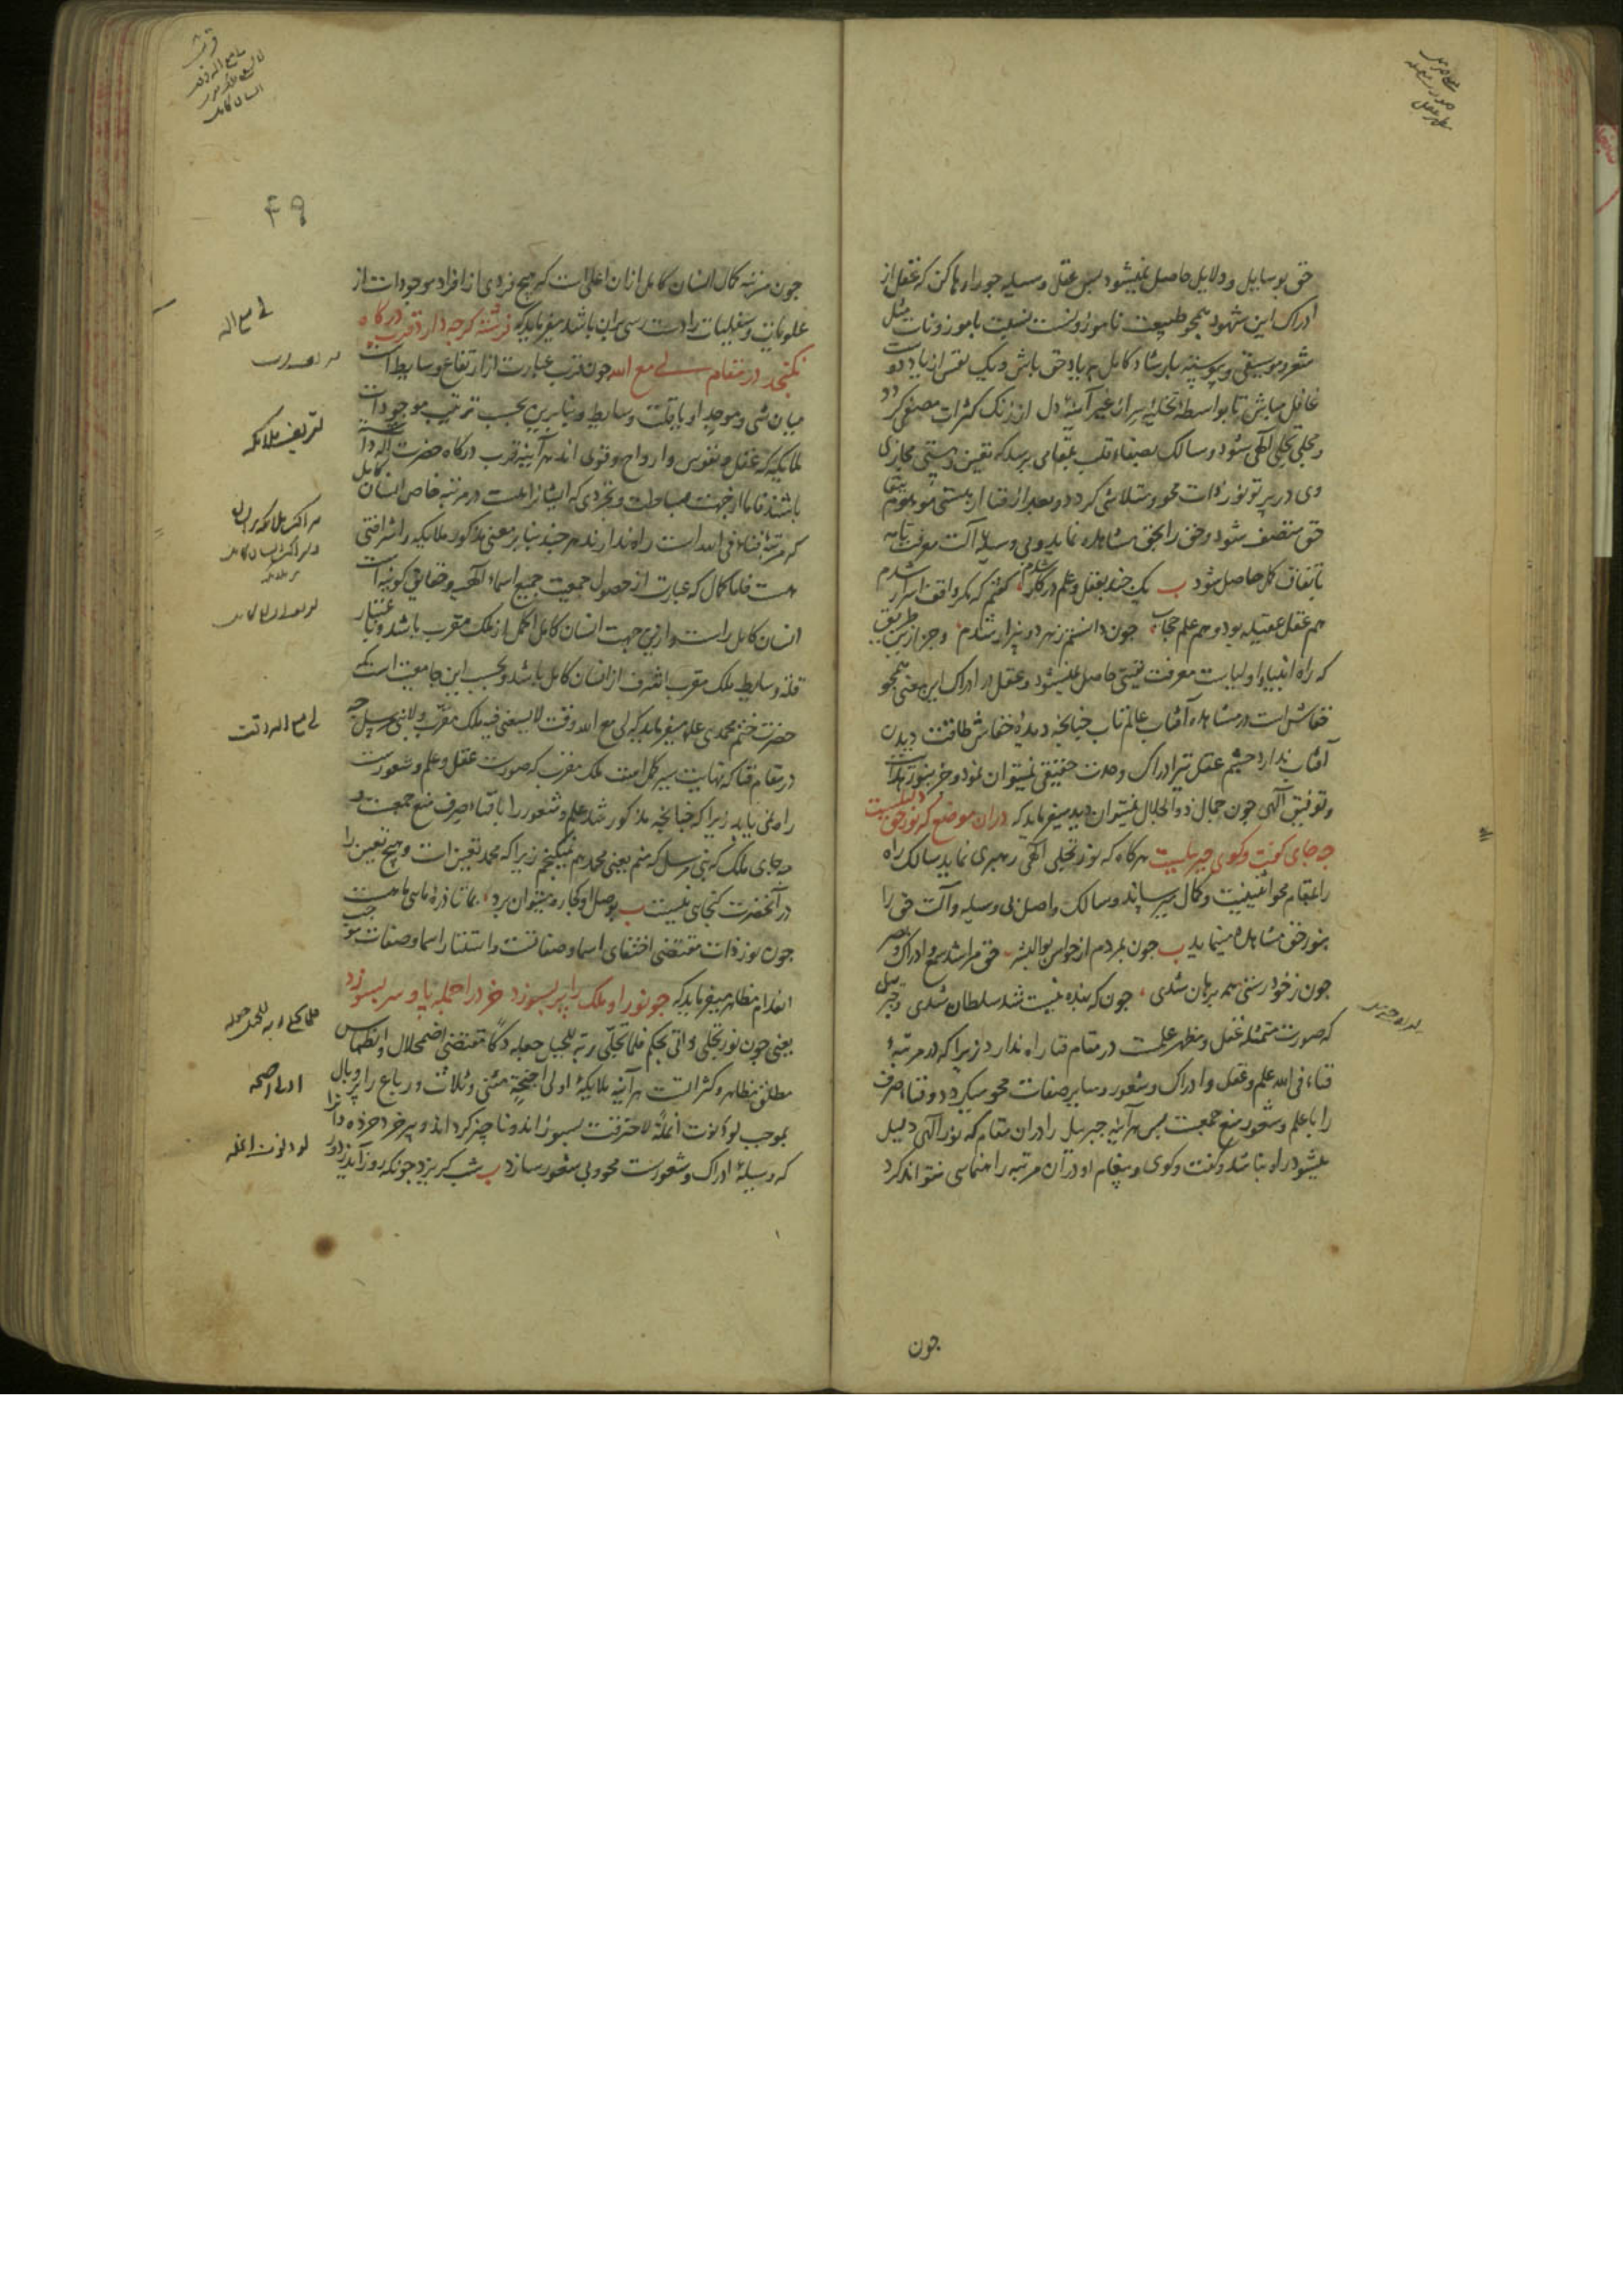 حق بوسایل و دلایل حاصل نمیشود پس عقل وسیله جو را رها کن که عقل از
ادراک این شهود همچو طبیعت ناموزونست نسبت با موزونات مثل
شعر و موسیقی و پیوسته بارشاد کامل بیاد حق باش و یک نفس از یاد دوست
غافل مباش تا بواسطه تخلیه سر از غیر آینه دل از زنگ کثرات مصفی گردد
و مجلی تجلی الهی شود و سالک بصفاء قلب بمقامی برسد که تعین و هستی مجازی
وی در پرتو نور ذات محو و متلاشی گردد و بعد از فنا از هستی موهوم ببقا
حق متصف شود و حق را بحق مشاهده نماید و بی وسیله آلت معرفت تامه
باتفاق کل حاصل شود ب یک چند بعقل و علم در کار شدم گفتم که مگر واقف اسرار شدم
هم عقل عقیله بود و هم علم حجاب چون دانستم زهر دو بیزار شدم و جز ازین طریق
که راه انبیا و اولیاست معرفت یقینی حاصل نمیشود و عقل در ادراک این معنی همچو
خفاش است در مشاهده آفتاب عالم تاب چنانچه دیده خفاش طاقت دیدن
آفتاب ندارد چشم عقل نیز ادراک وحدت حقیقی نمیتوان نمود و جز بنور هدایت
و توفیق الهی چون جمال ذو الجلال نمیتوان دید میفرماید که دران موضع که نور حق دلیلست
چه جای گفت و گوی جبرئیلست هر گاه که نور تجلی الهی رهبری نماید سالک راه
را بمقام محو اثنینیت و کمال میرساند و سالک واصل بی وسیله و آلت حق را
بنور حق مشاهده مینماید ب چون بمردم از حواس بوالبشر حق مرا شد سمع و ادراک و بصر
چون ز خود رستی همه برهان شدی چون که بنده نیست شد سلطان شدی و جبرئیل
که صورت متمثله عقل و مظهر علمست در مقام فنا راه ندارد زیرا که در مرتبه
فناء فی الله علم و عقل و ادراک و شعور و سایر صفات محو میگردد و فناء صرف
را با علم و شعور منع جمعیت پس هر آینه جبرئیل را دران مقام که نور الهی دلیل
میشود راه نباشد و گفت و گوی و پیغام او در آن مرتبه راهنمایی نتواند کرد
چون
۴۹
چون مرتبه کمال انسان کامل ازان اعلی است که هیچ فردی از افراد موجودات از
علویات و سفلیات را دست رسی بران باشد میفرماید که فرشته گرچه دارد قرب درگاه
نگنجد در مقام لی مع الله چون قرب عبارت از ارتفاع وسایط است
میان شیء و موجد او با قلت وسایط و بنابرین بحسب ترتیب موجودات
ملایکه که عقل و نفوس و ارواح و قوی اند هر آینه قرب درگاه حضرت اله را
باشند فاما از جهت بساطت و تجردی که ایشانراست در مرتبه خاص انسان کامل
که مرتبه فناء فی الله است راه ندارند هر چند بنا بر معنی مذکور ملایکه را شرافتی
هست فاما کمال که عبارت از حصول جمعیت جمیع اسماء الهیه و حقایق کونیه است
انسان کامل راست و ازین جهت انسان کامل اکمل از ملک مقرب باشد و باعتبار
قلت وسایط ملک مقرب اشرف از انسان کامل باشد و بحسب این جامعیت است که
حضرت ختم محمدی علم میفرماید که لی مع الله وقت لا یسعنی فیه ملک مقرب و لا نبی مرسل چه
در مقام فنا که نهایت سیر کمل است ملک مقرب که صورت عقل و علم و شعورست
راه نمی یابد زیرا که چنانچه مذکور شد علم و شعور را با فناء صرف منع جمعست و
چه جای ملک که نبی مرسل که منم یعنی محمدم نمیگنجم زیرا که محمد تعین است و هیچ تعین را
در آنحضرت گنجایی نیست ب بوصل او کجا ره میتوان برد بما تا ذره مایی ماست
چون نور ذات مقتضی اختفای اسما و صفاتست و استتار اسما و صفات موجب
انعدام مظاهر میفرماید که چو نور او ملک را پر بسوزد خرد را جمله پا و سر بسوزد
یعنی چون نور تجلی ذاتی بحکم فلما تجلی ربه للجبل جعله دکا مقتضی اضمحلال و انطماس
مطلق مظاهر و کثراتست هر آینه ملایکه اولی اجنحة مثنی و ثلاث و رباع را پر و بال
بموجب لو دنوت انملة لاحترقت بسوزاند و ناچیز گرداند و پیر خرد خرده دان را
که وسیله ادراک و شعورست محو و بی شعور سازد ب شب گریزد چونکه روز آید ز دور
لی مع اله
تعریف ملایکه
لی مع اله وقت
اولی اجنحه
لو دنوت انمله